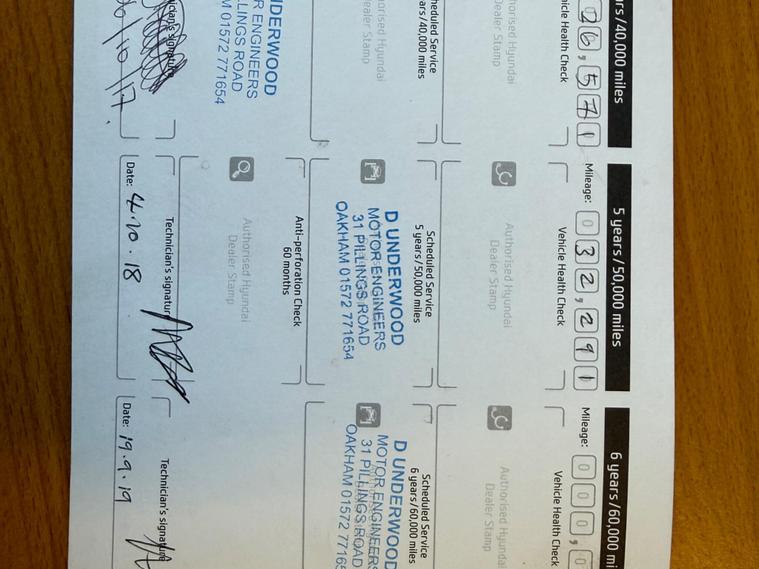 ars / 40,000 miles
26,571
ehicle Health Check
uthorised Hyundai
Dealer Stamp
cheduled Service
ears/40,000 miles
uthorised Hyundai
ealer Stamp
NDERWOOD
R ENGINEERS
LLINGS ROAD
M 01572 771654
nician's signature
/10/17
5 years / 50,000 miles
Mileage: 032,291
Vehicle Health Check
Authorised Hyundai
Dealer Stamp
Scheduled Service
5 years/50,000 miles
D UNDERWOOD
MOTOR ENGINEERS
31 PILLINGS ROAD
OAKHAM 01572 771654
Anti-perforation Check
60 months
Authorised Hyundai
Dealer Stamp
Technician's signature
Date: 4.10.18
6 years / 60,000 mi
Mileage: 000,0
Vehicle Health Check
Authorised Hyundai
Dealer Stamp
Scheduled Service
6 years/60,000 miles
D UNDERWOOD
MOTOR ENGINEERS
31 PILLINGS ROAD
OAKHAM 01572 7716
Technician's signature
Date: 19.9.19